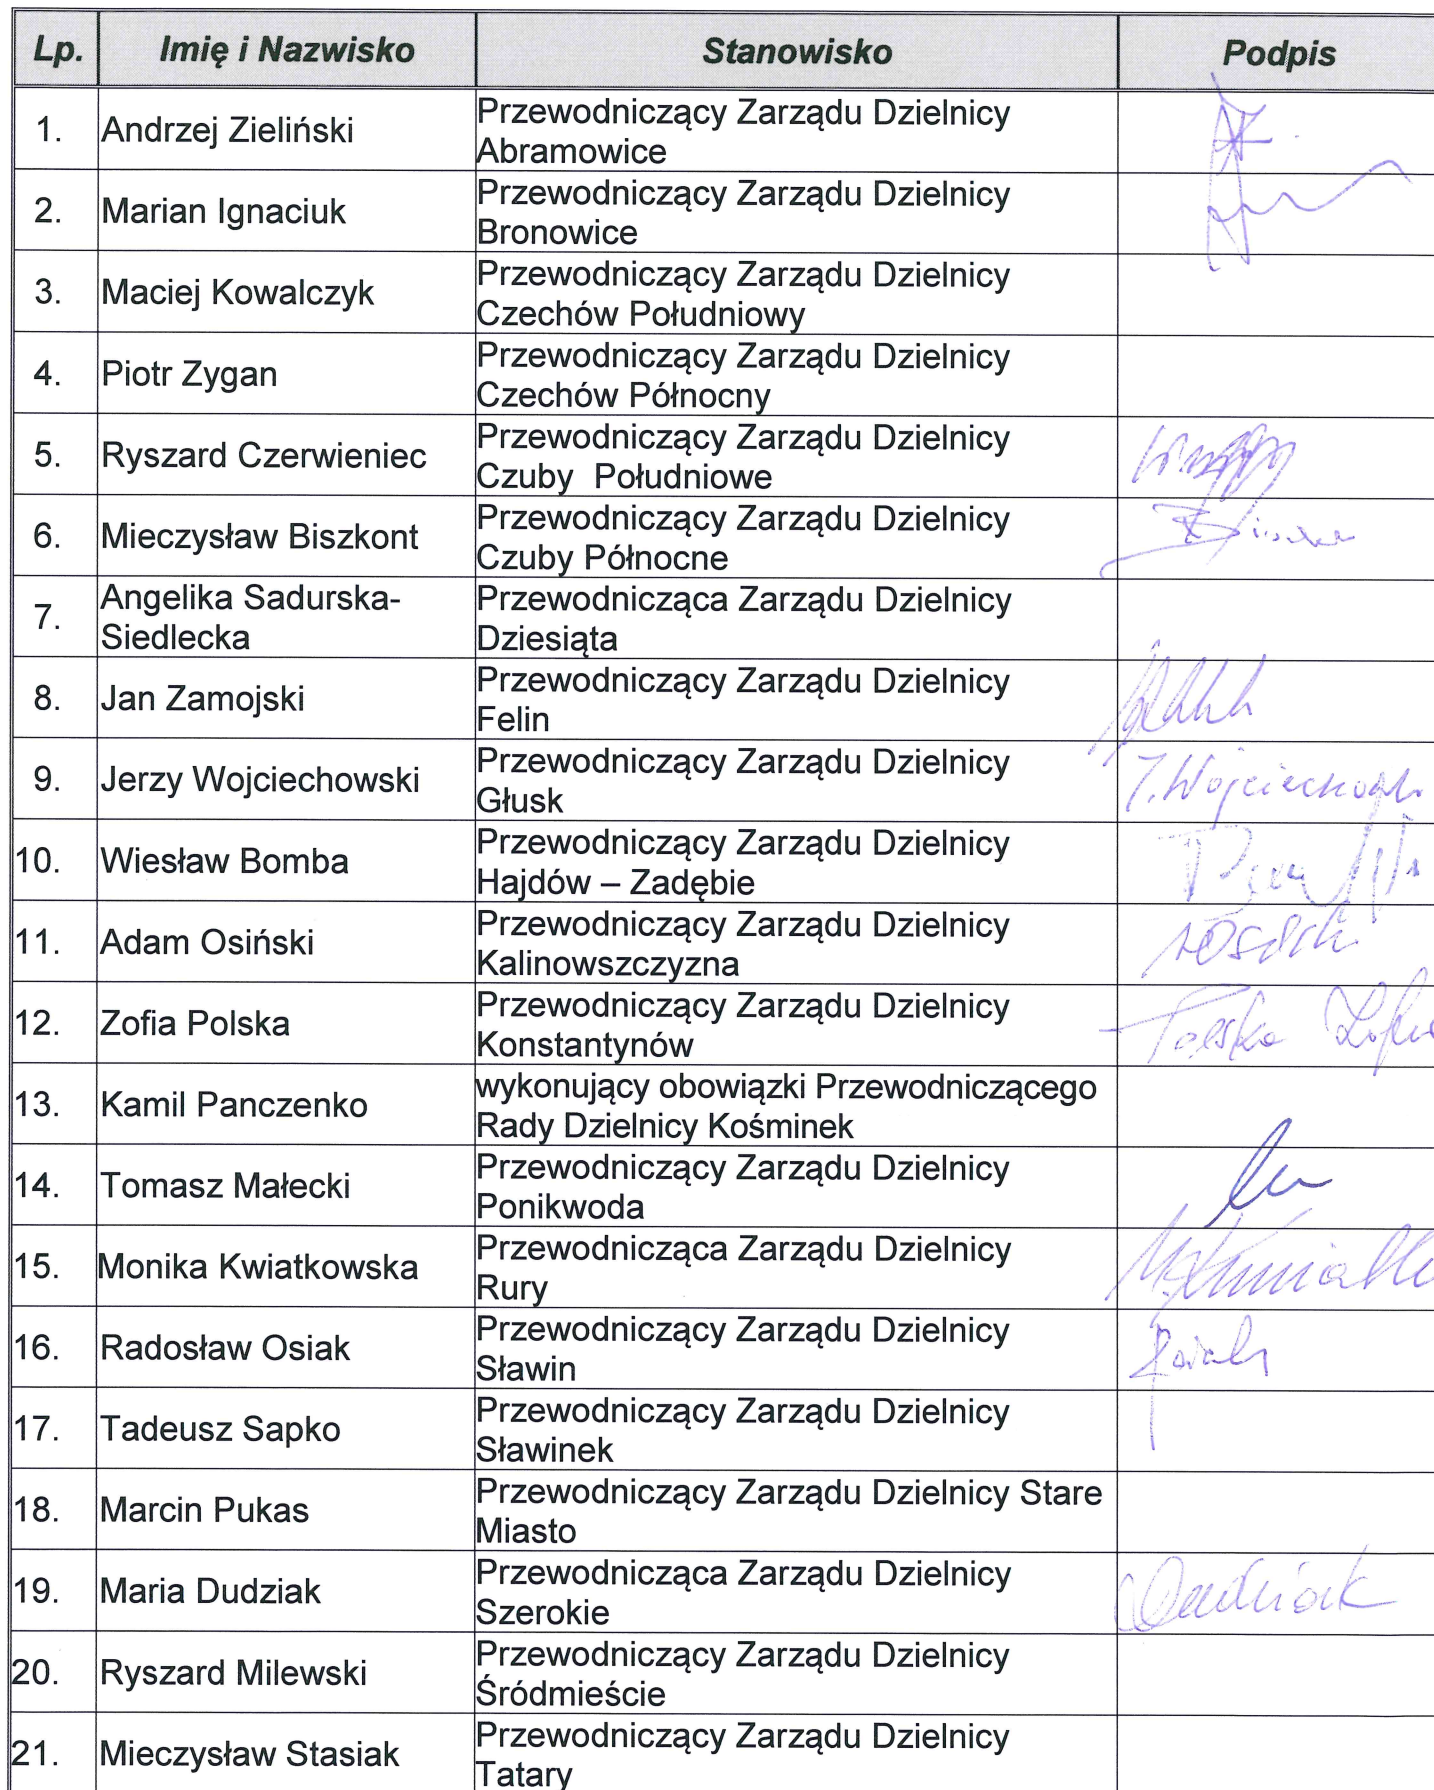 Lp. Imię i Nazwisko Stanowisko Podpis
1. Andrzej Zieliński Przewodniczący Zarządu Dzielnicy
Abramowice
2. Marian Ignaciuk Przewodniczący Zarządu Dzielnicy
Bronowice
3. Maciej Kowalczyk Przewodniczący Zarządu Dzielnicy
Czechów Południowy
4. Piotr Zygan Przewodniczący Zarządu Dzielnicy
Czechów Północny
5. Ryszard Czerwieniec Przewodniczący Zarządu Dzielnicy
Czuby Południowe
6. Mieczysław Biszkont Przewodniczący Zarządu Dzielnicy
Czuby Północne
7. Angelika Sadurska- Przewodnicząca Zarządu Dzielnicy
Siedlecka Dziesiąta
8. Jan Zamojski Przewodniczący Zarządu Dzielnicy
Felin
9. Jerzy Wojciechowski Przewodniczący Zarządu Dzielnicy J. Wojciechowski
Głusk
10. Wiesław Bomba Przewodniczący Zarządu Dzielnicy
Hajdów – Zadębie
11. Adam Osiński Przewodniczący Zarządu Dzielnicy
Kalinowszczyzna
12. Zofia Polska Przewodniczący Zarządu Dzielnicy Polska Zofia
Konstantynów
13. Kamil Panczenko wykonujący obowiązki Przewodniczącego
Rady Dzielnicy Kośminek
14. Tomasz Małecki Przewodniczący Zarządu Dzielnicy
Ponikwoda
15. Monika Kwiatkowska Przewodnicząca Zarządu Dzielnicy
Rury
16. Radosław Osiak Przewodniczący Zarządu Dzielnicy
Sławin
17. Tadeusz Sapko Przewodniczący Zarządu Dzielnicy
Sławinek
18. Marcin Pukas Przewodniczący Zarządu Dzielnicy Stare
Miasto
19. Maria Dudziak Przewodnicząca Zarządu Dzielnicy Dudziak
Szerokie
20. Ryszard Milewski Przewodniczący Zarządu Dzielnicy
Śródmieście
21. Mieczysław Stasiak Przewodniczący Zarządu Dzielnicy
Tatary